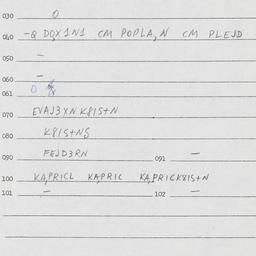 030 0
040 -Q DQX1N1 CM POPLA,N CM PLEJD
050 -
060 -
061 0
070 EVAJ3XN K8IS+N
080 K8IS+NS
090 FEJD3RN 091 -
100 KA,PRICL KAPRIC KA,PRICK8IS+N
101 - 102 -